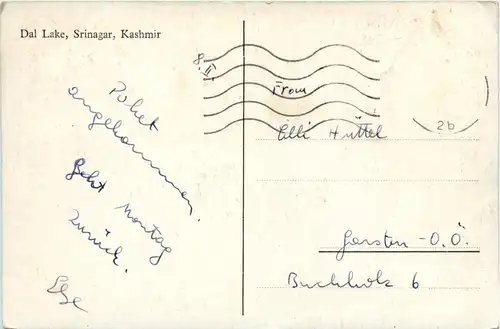 Dal Lake, Srinagar, Kashmir
8.II.
Paket
angekommen.
Geht Montag
zurück.
Else
From
Elli Hüttel
2b
Garsten - O.Ö.
Buchholz 6